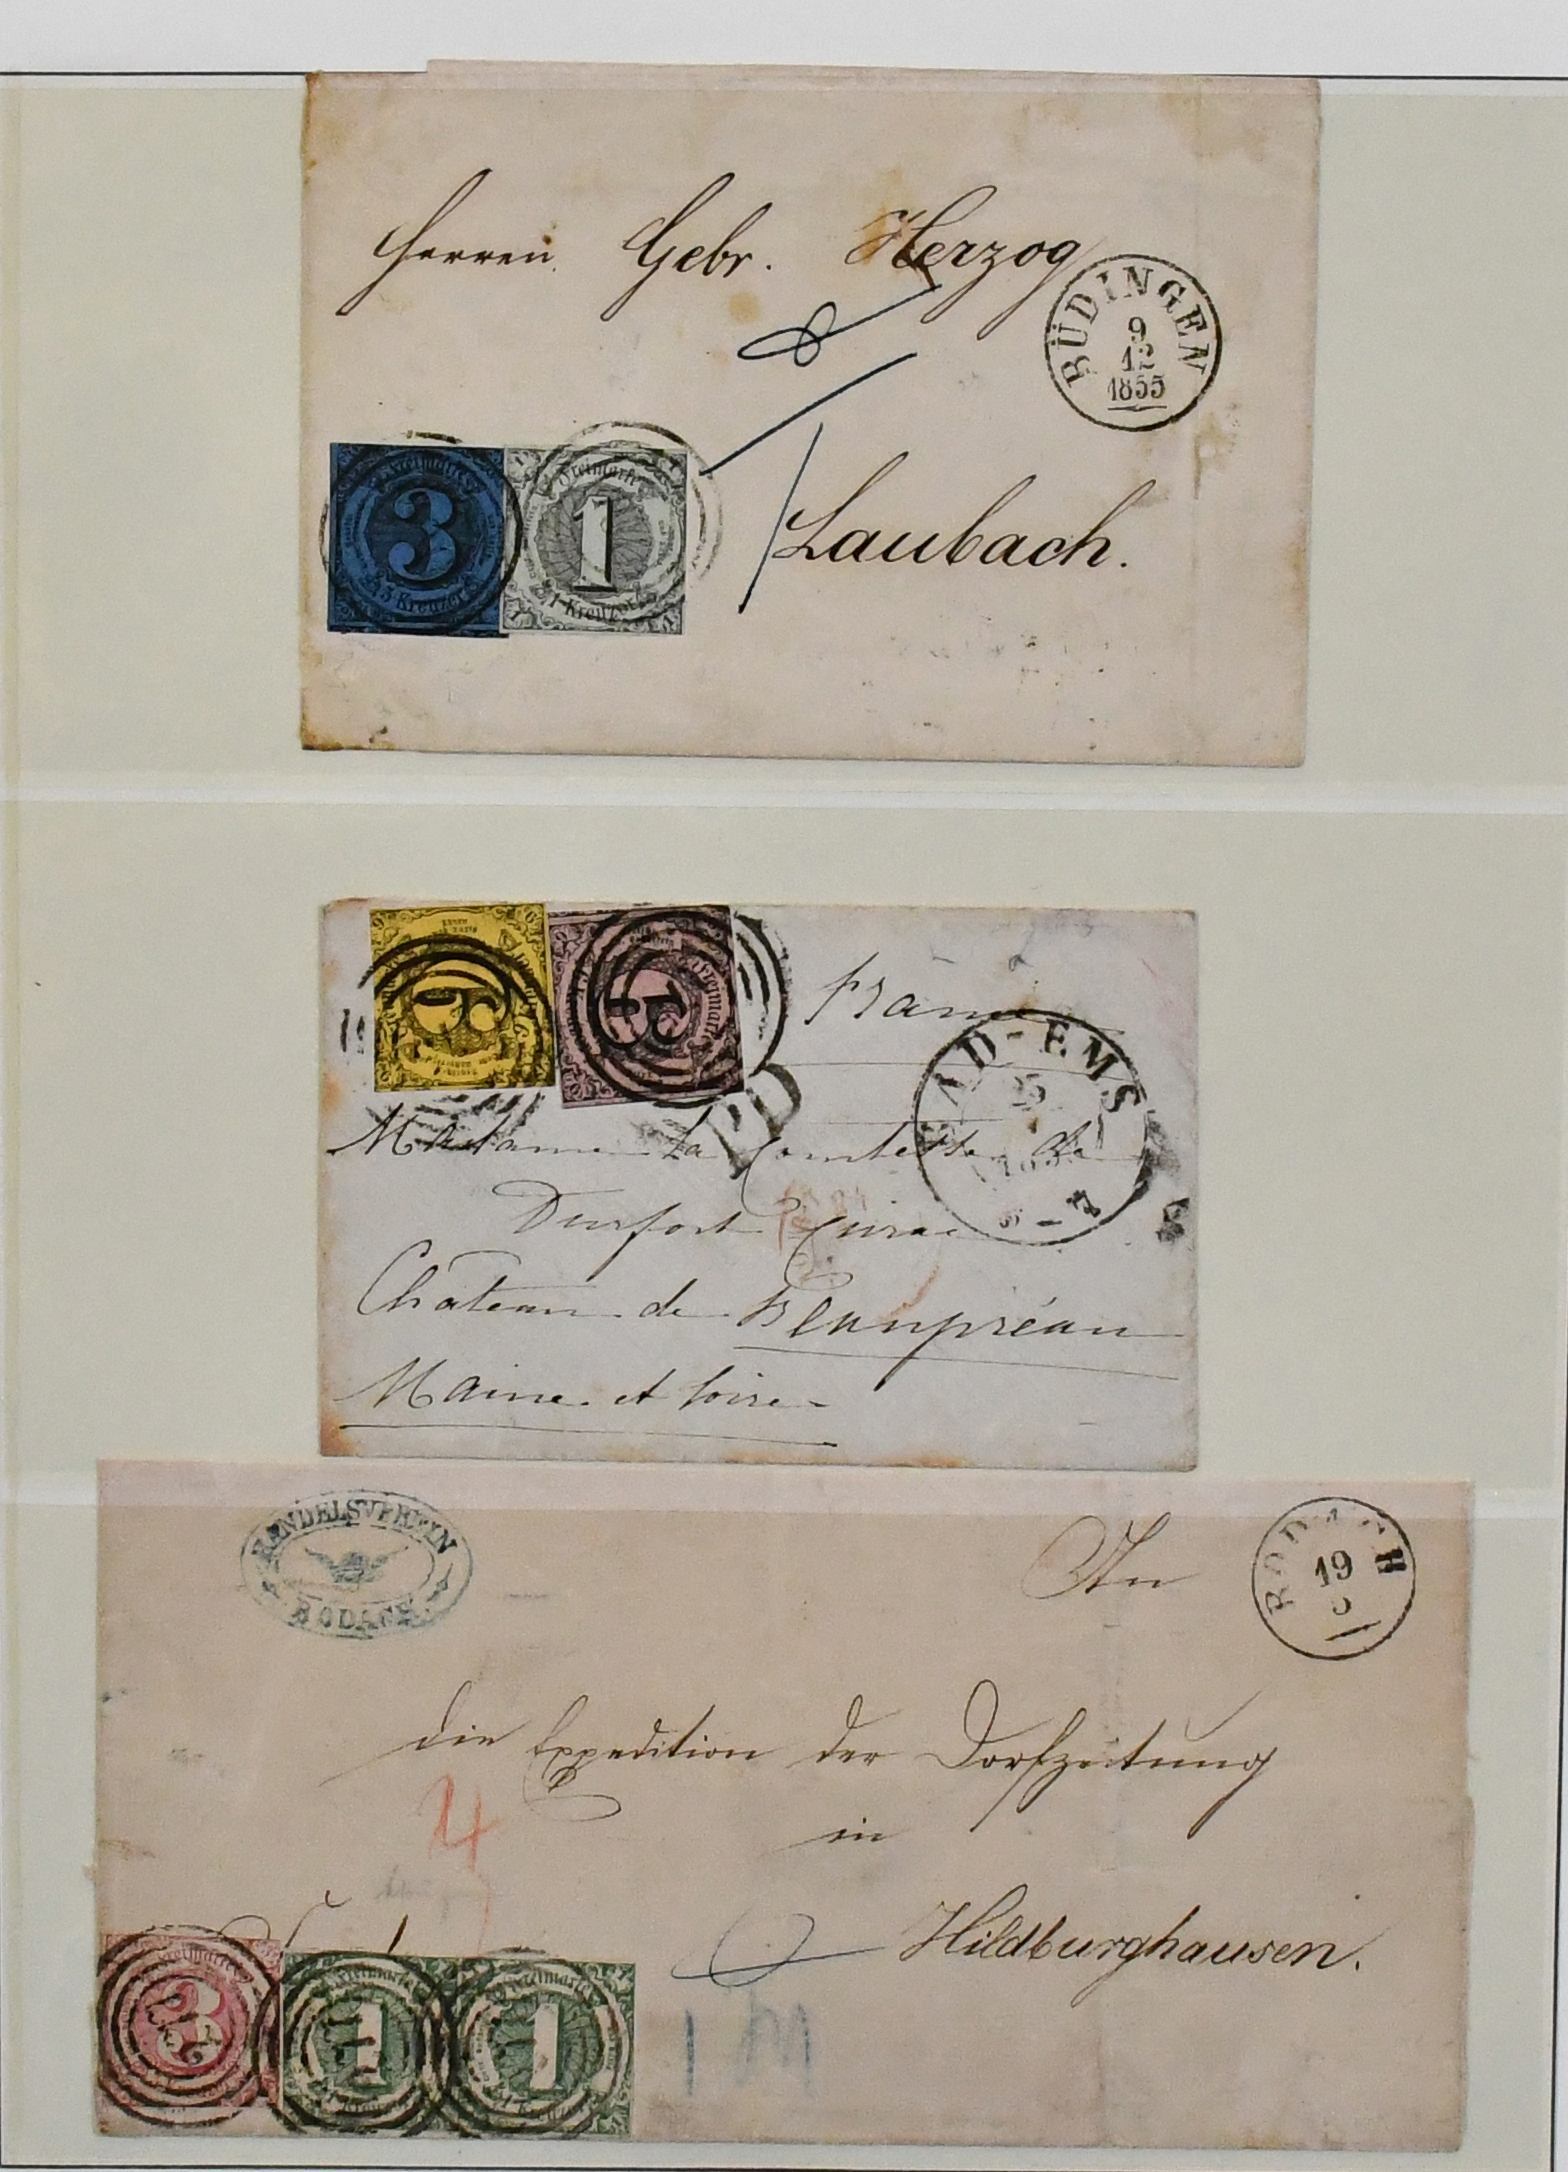 Herren Gebr. Herzog
BÜDINGEN
9
12
1855
Freimarke
3
3 Kreuzer
Freimarke
1
1 Kreuzer
Laubach.
9
Freimarke
France
AD-EMS
25
Madame la Comtesse de
Durfort Civrac
Château de Beaupréau
Maine et Loire
HANDELSVEREIN
RODACH
An
RODACH
19
die Expedition der Dorfzeitung
in
4
Hildburghausen.
Freimarke
3
Freimarke
1
1 Kreuzer
Freimarke
1
1 Kreuzer